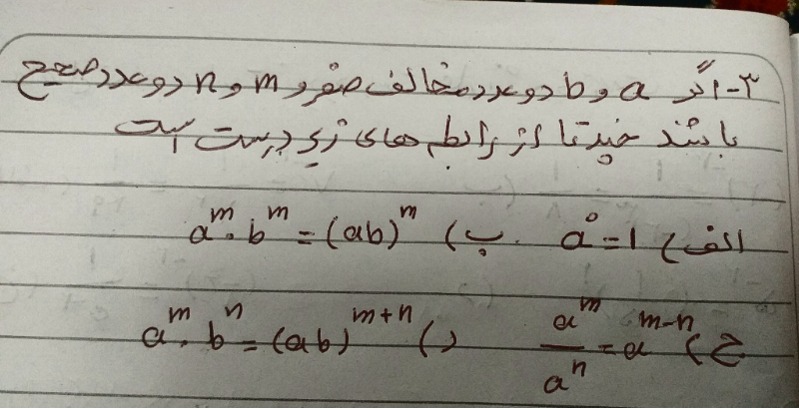 ۳-اگر a و b دو عدد مخالف صفر و m و n دو عدد صحیح
باشند چندتا از رابطه های زیر درست است
الف) a⁰=1 ب) aᵐ·bᵐ=(ab)ᵐ
ج) aᵐ/aⁿ=aᵐ⁻ⁿ د) aᵐ·bⁿ=(ab)ᵐ⁺ⁿ